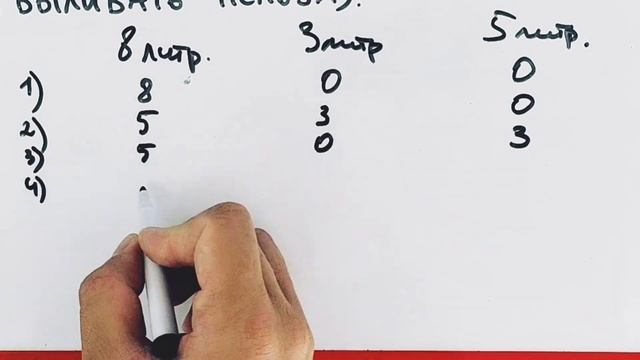 ВЫЛИВАТЬ
8 литр. 3 литр 5 литр.
1) 8 0 0
2) 5 3 0
3) 5 0 3
4)